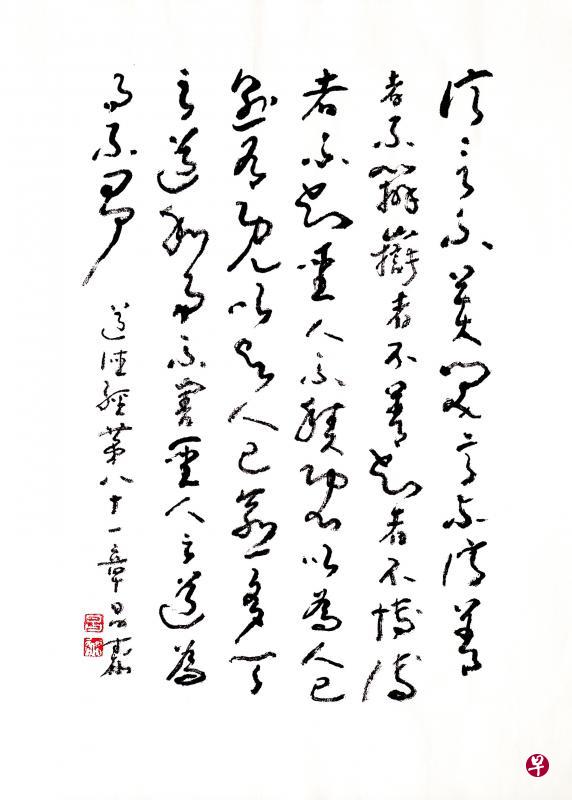 信言不美美言不信善
者不辯辯者不善知者不博博
者不知聖人不積既以為人己
愈有既以與人己愈多天
之道利而不害聖人之道為
而不爭
道德經第八十一章
早